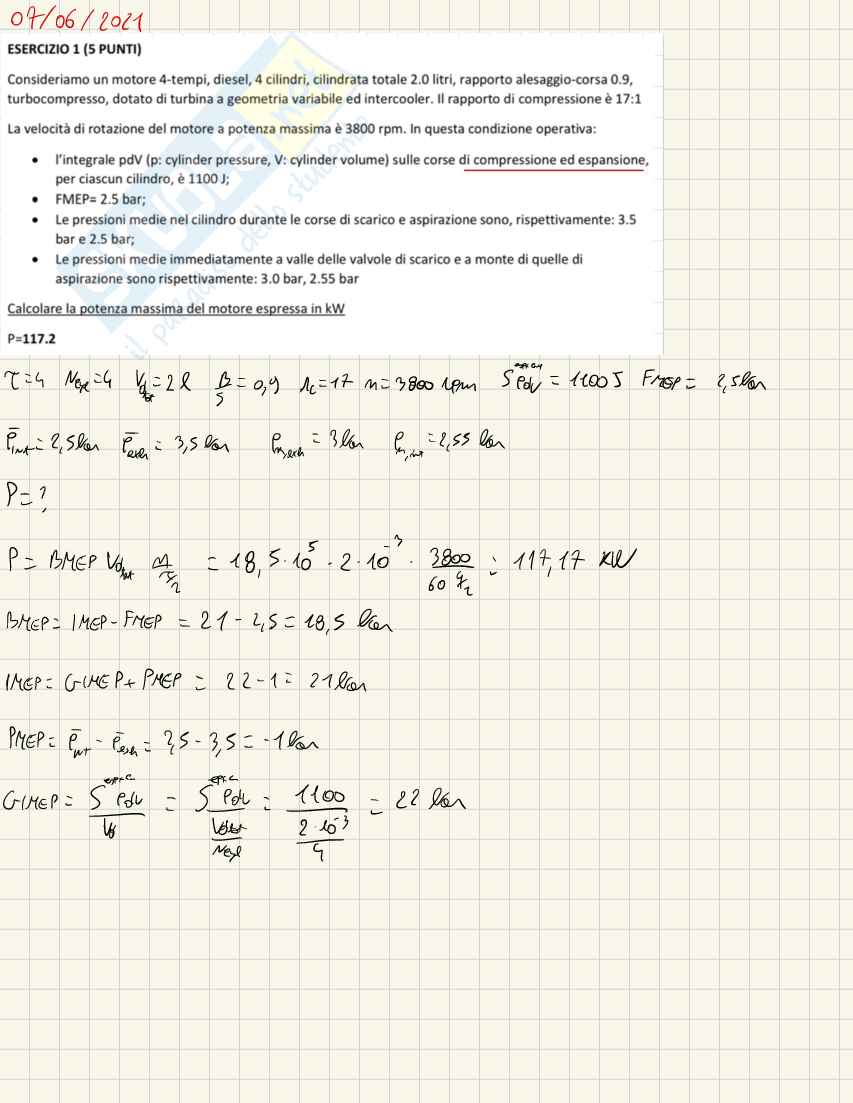 07/06/2021
ESERCIZIO 1 (5 PUNTI)
Consideriamo un motore 4-tempi, diesel, 4 cilindri, cilindrata totale 2.0 litri, rapporto alesaggio-corsa 0.9,
turbocompresso, dotato di turbina a geometria variabile ed intercooler. Il rapporto di compressione è 17:1
La velocità di rotazione del motore a potenza massima è 3800 rpm. In questa condizione operativa:
• l'integrale pdV (p: cylinder pressure, V: cylinder volume) sulle corse di compressione ed espansione,
per ciascun cilindro, è 1100 J;
• FMEP= 2.5 bar;
• Le pressioni medie nel cilindro durante le corse di scarico e aspirazione sono, rispettivamente: 3.5
bar e 2.5 bar;
• Le pressioni medie immediatamente a valle delle valvole di scarico e a monte di quelle di
aspirazione sono rispettivamente: 3.0 bar, 2.55 bar
Calcolare la potenza massima del motore espressa in kW
P=117.2
τ=4 Ncyl=4 Vdtot=2l B/S=0,9 rc=17 n=3800 rpm ∫pdV=1100J FMEP= 2,5bar
p̄int=2,5bar p̄exh=3,5bar pm,exh=3bar pm,int=2,55 bar
P=?
P= BMEP Vdtot n/(τ/2) = 18,5·10^5 · 2·10^-3 · 3800/(60 4/2) = 117,17 kW
BMEP= IMEP-FMEP = 21-2,5=18,5 bar
IMEP= GIMEP+PMEP = 22-1= 21bar
PMEP= p̄int - p̄exh= 2,5-3,5=-1bar
GIMEP= ∫pdV/Vd = ∫pdV/(Vdtot/Ncyl) = 1100/(2·10^-3/4) = 22 bar